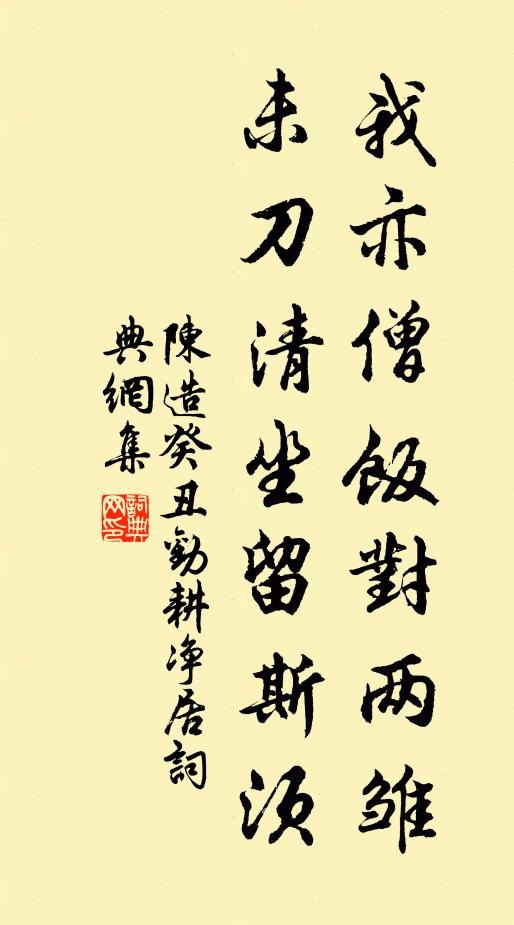 我亦僧飯對两雏
未刀清坐留斯須
陳造癸丑勸耕净居詞
典網集
詞典网印